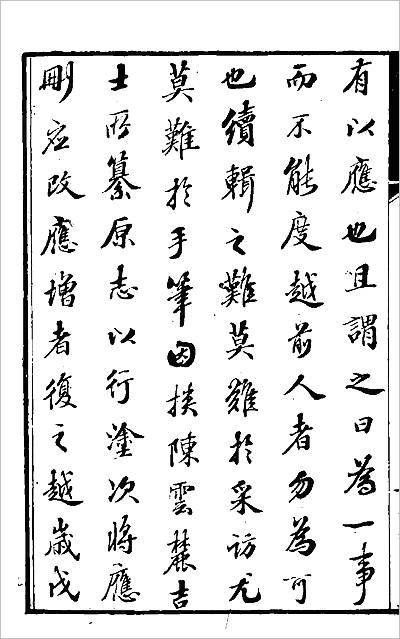 有以應也且謂之曰為一事
而不能度越前人者勿為可
也續輯之難莫難於采访尤
莫難於手筆因挨陳雲麓吉
士所纂原志以行塗次將應
刪应改應增者復之越歲戊